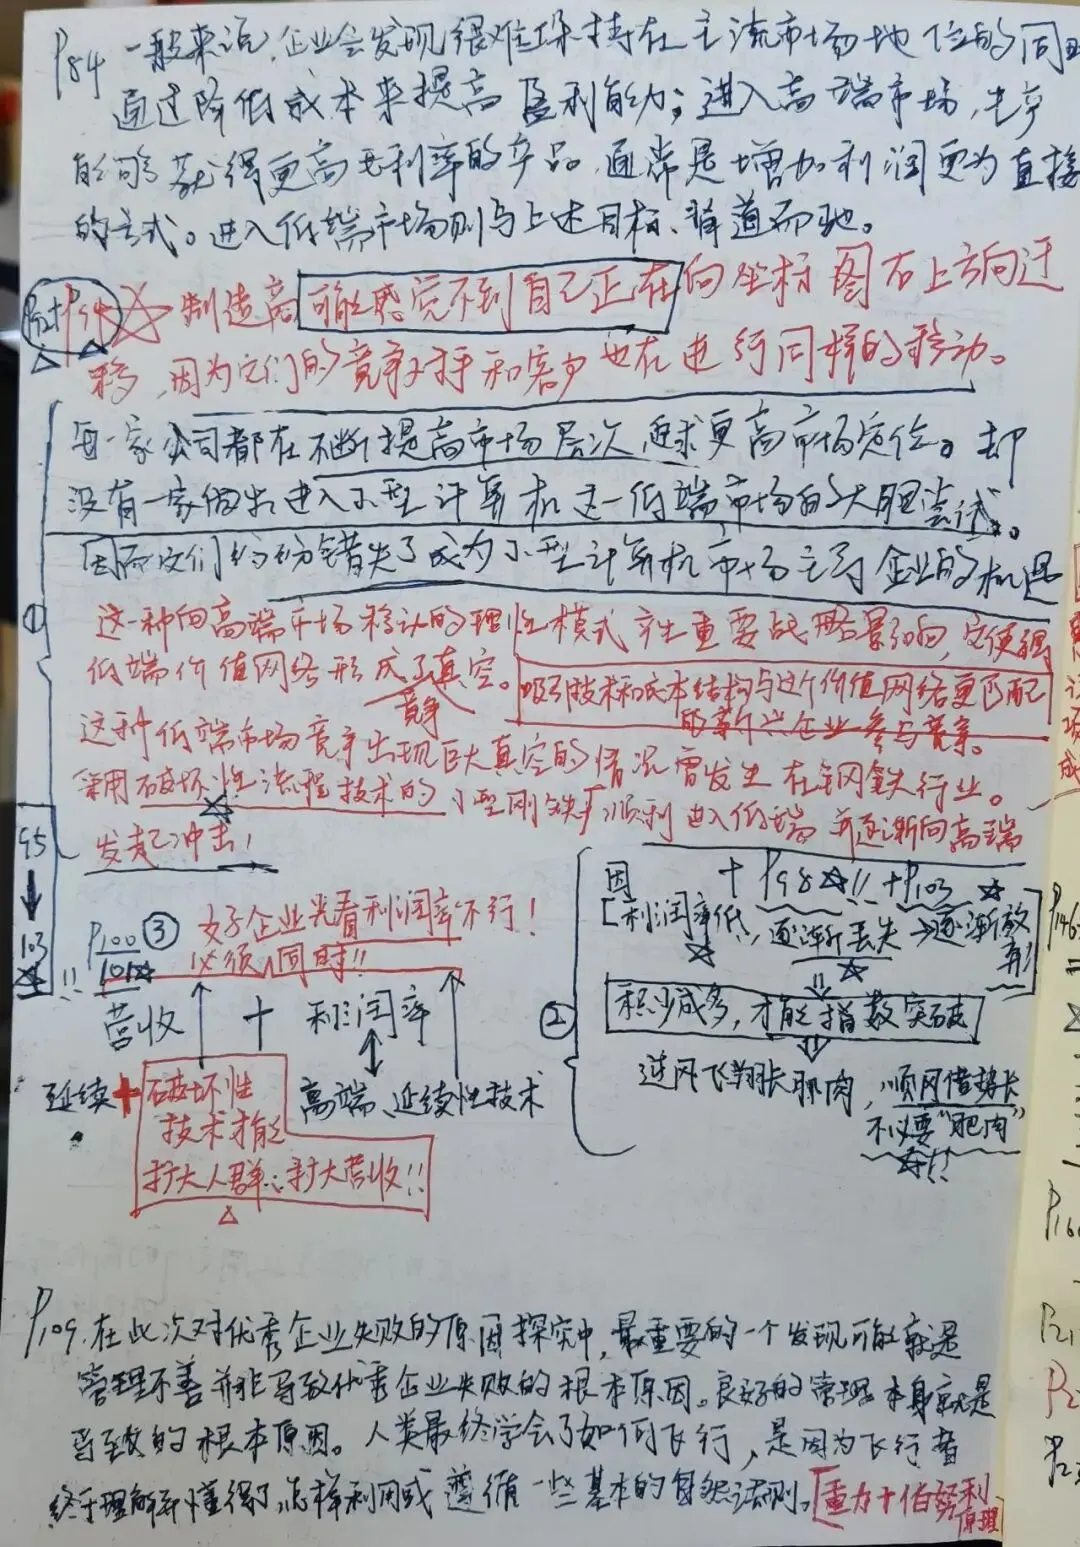 P84 一般来说,企业会发现很难保持在主流市场地位的同时
通过降低成本来提高盈利能力;进入高端市场,生产
能够获得更高毛利率的产品,通常是增加利润更为直接
的方式。进入低端市场则与上述目标背道而驰。
P92+P94 制造商可能感觉不到自己正在向坐标图右上方向迁
移,因为它们的竞争对手和客户也在进行同样的移动。
每一家公司都在不断提高市场层次,追求更高市场定位。却
没有一家做出进入小型计算机这一低端市场的大胆尝试。
因而它们纷纷错失了成为小型计算机市场主导企业的机遇
① 这一种向高端市场移动的理性模式产生重要战略影响,它使得
低端价值网络形成了真空。吸引技术和成本结构与这个价值网络更匹配
竞争 的新兴企业参与竞争。
这种低端市场竞争出现巨大真空的情况曾发生在钢铁行业。
采用破坏性流程技术的小型钢铁厂顺利进入低端并逐渐向高端
发起冲击!
95
↓
103 !!
P100 ③ 好企业光看利润率不行!
101 必须同时!!
营收 + 利润率
延续+破坏性 高端、延续性技术
技术才能
扩大人群∴扩大营收!!
因 + P98 !! + P103
[利润率低,逐渐丢失→逐渐放弃]
② 积少成多,才能指数突破
逆风飞翔长肌肉,顺风借势长
不必要"肥肉"
!!
P109.在此次对优秀企业失败的原因探究中,最重要的一个发现可能就是
管理不善并非导致优秀企业失败的根本原因。良好的管理本身就是
导致的根本原因。人类最终学会了如何飞行,是因为飞行者
终于理解并懂得了怎样利用或遵循一些基本的自然法则。[重力+伯努利
原理]
P146
P160
P21